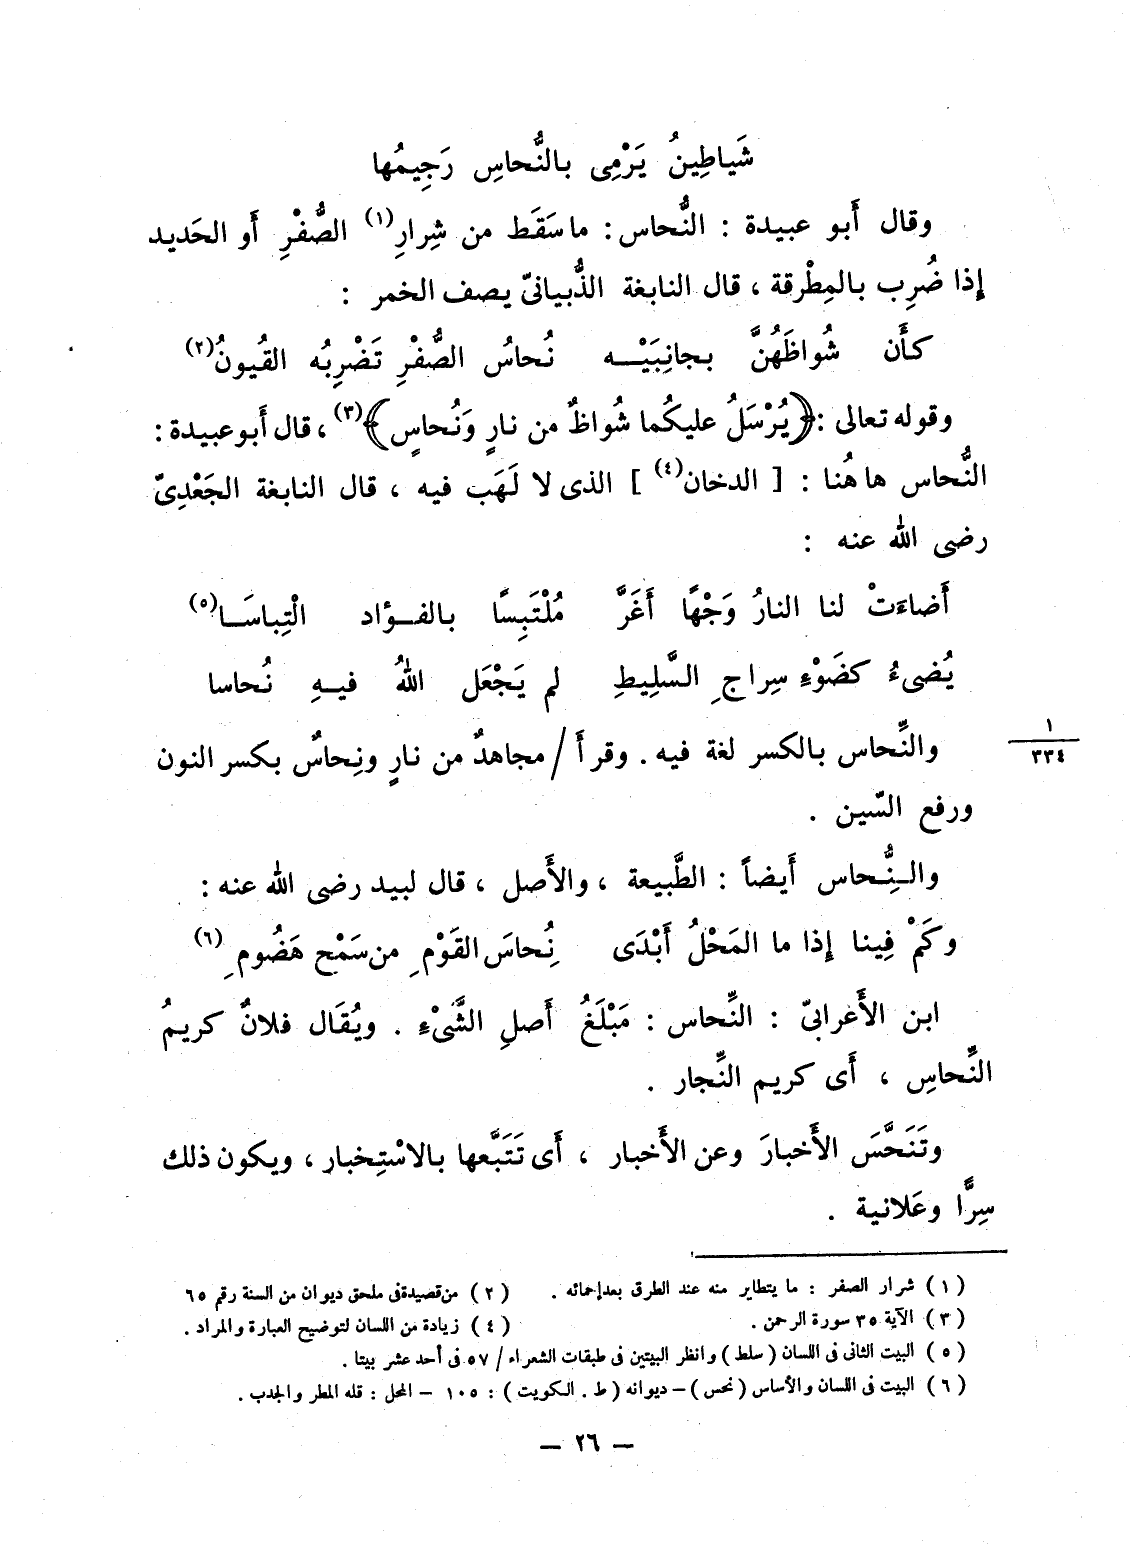 شَياطِينُ يَرْمِى بالنُّحاسِ رَجِيمُها
وقال أَبو عبيدة : النُّحاس: ماسَقَط من شِرارِ(١) الصُّفْرِ أَو الحَديد
إِذا ضُرِب بالمِطْرقة ، قال النابغة الذُّبيانىّ يصف الخمر :
كأَن شُواظَهُنَّ بجانِبَيْـــه نُحاسُ الصُّفْرِ تَضْرِبُه القُيونُ(٢)
وقوله تعالى :﴿يُرْسَلُ عليكُما شُواظٌ من نارٍ وَنُحاسٍ﴾(٣) ، قال أَبوعبيدة :
النُّحاس هاهُنا : [ الدخان(٤) ] الذى لا لَهَب فيه ، قال النابغة الجَعْدِىّ
رضى الله عنه :
أَضاءَتْ لنا النارُ وَجْهًا أَغَرَّ مُلْتَبِسًا بالفــؤاد الْتِباسَــا(٥)
يُضىءُ كضَوْءِ سِراجِ السَّلِيطِ لم يَجْعَل اللهُ فيــهِ نُحاسا
والنِّحاس بالكسر لغة فيه . وقرأَ / مجاهدٌ من نارٍ ونِحاسٌ بكسر النون
١
٣٣٤
ورفع السّين .
والـنِّـُحاس أَيضاً : الطَّبيعة ، والأَصل ، قال لبيد رضى الله عنه :
وكَمْ فِينا إِذا ما المَحْلُ أَبْدَى نِـُحاسَ القَوْمِ من سَمْحٍ هَضُومِ (٦)
ابن الأَعرابىّ : النِّحاس : مَبْلَغُ أَصلِ الشَّىْءِ . ويُقَال فلانٌ كريمُ
النِّحاسِ ، أَى كريم النِّجار .
وتَنَحَّسَ الأَخبارَ وعن الأَخبار ، أَى تَتَبَّعها بالاسْتِخبار ، ويكون ذلك
سِرًّا وعَلانية .
(١) شرار الصفر : ما يتطاير منه عند الطرق بعدإحمائه . (٢) من قصيدة فى ملحق ديوان من السنة رقم ٦٥
(٣) الآية ٣٥ سورة الرحمن . (٤) زيادة من اللسان لتوضيح العبارة والمراد .
(٥) البيت الثانى فى اللسان (سلط) وانظر البيتين فى طبقات الشعراء / ٥٧ فى أحد عشر بيتا .
(٦) البيت فى اللسان والأساس (نحس) – ديوانه (ط . الكويت) : ١٠٥ – المحل : قله المطر والجدب .
— ٢٦ —